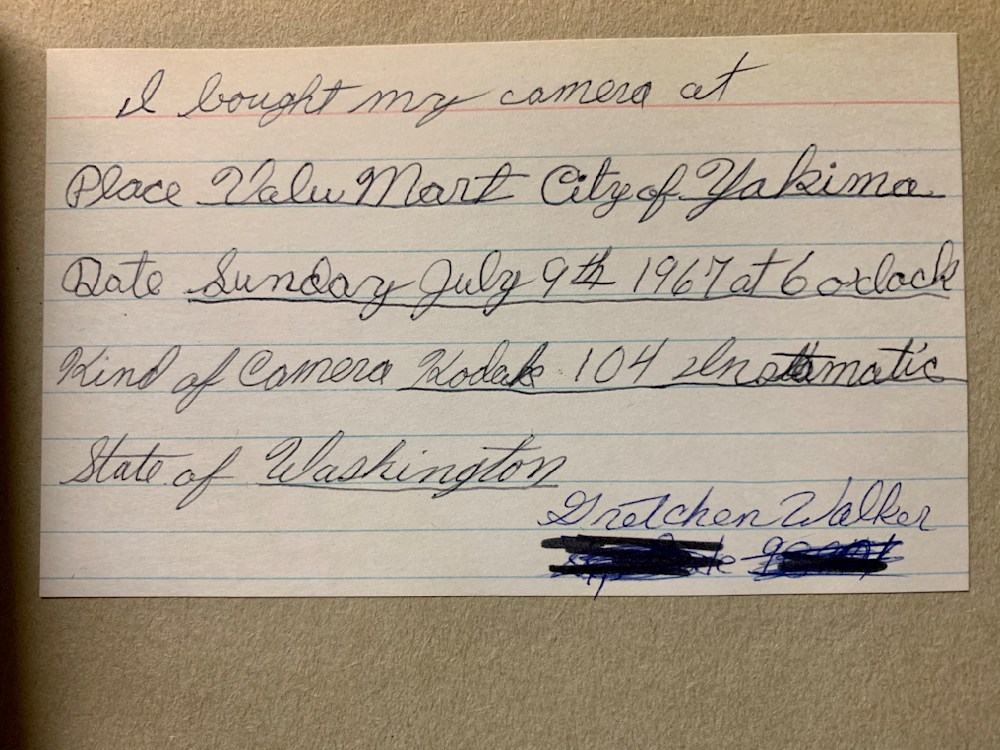 I bought my camera at
Place Valu Mart City of Yakima
Date Sunday July 9th 1967 at 6 oclock
Kind of Camera Kodak 104 Instamatic
State of Washington
Gretchen Walker